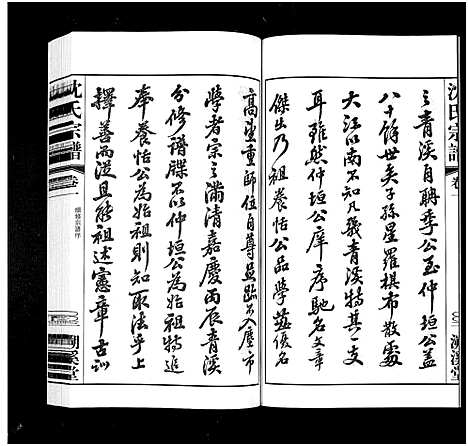 沈氏宗譜
卷一
之青溪自聃季公至仲垣公蓋
八十餘世矣子孫星羅棋布散處
大江以南不知凡幾青溪特其一支
耳雖然仲垣公庠序馳名文章
傑出乃祖養恬公品學兼優名
湖溪堂
高望重師位自尊
學者宗之滿清嘉慶丙辰青溪
分修譜牒不以仲垣公為始祖特追
奉養恬公為始祖則知取法乎上
擇善而從且能祖述憲章古訓
沈氏宗譜
卷一
湖溪堂